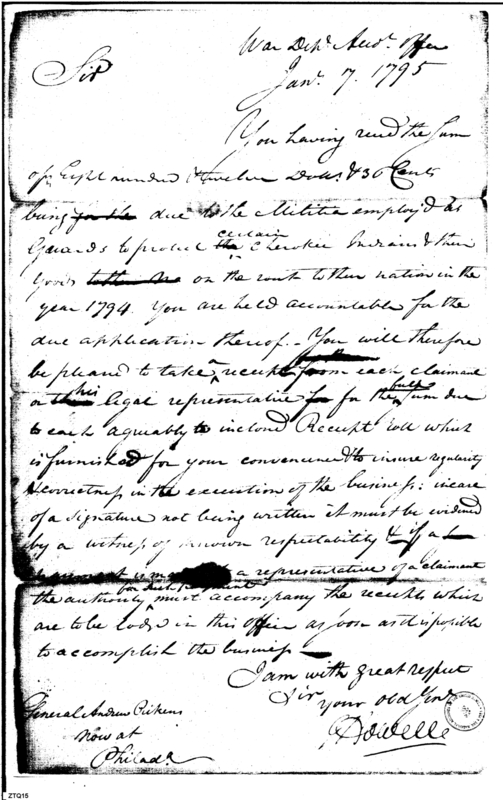 War Dept. Accts. Office
Jany. 7. 1795
Sir
You having recd the Sum
of Eight hundred & twelve Dolls. & 30 Cents
being for the due to the Militia employ'd as
Guards to protect the certain Cherokee Indians & their
Goods on the route to their nation in the
year 1794. You are held accountable for the
due application thereof. - You will therefore
be pleased to take a receipt from each claimant
or his legal representative for for the Sum due
to each agreeably to inclosed Receipt roll which
is furnished for your convenience & to insure regularity
& correctness in the execution of the business: incase
of a signature not being written it must be evidenced
by a witness of known respectability & if a
a representative of a claimant
the authority must accompany the receipts which
are to be lodg'd in this office as soon as it is possible
to accomplish the business
I am with great respect
Sir
Your Obd Servt
General Andrew Pickens
now at
Philada
ZTQ15